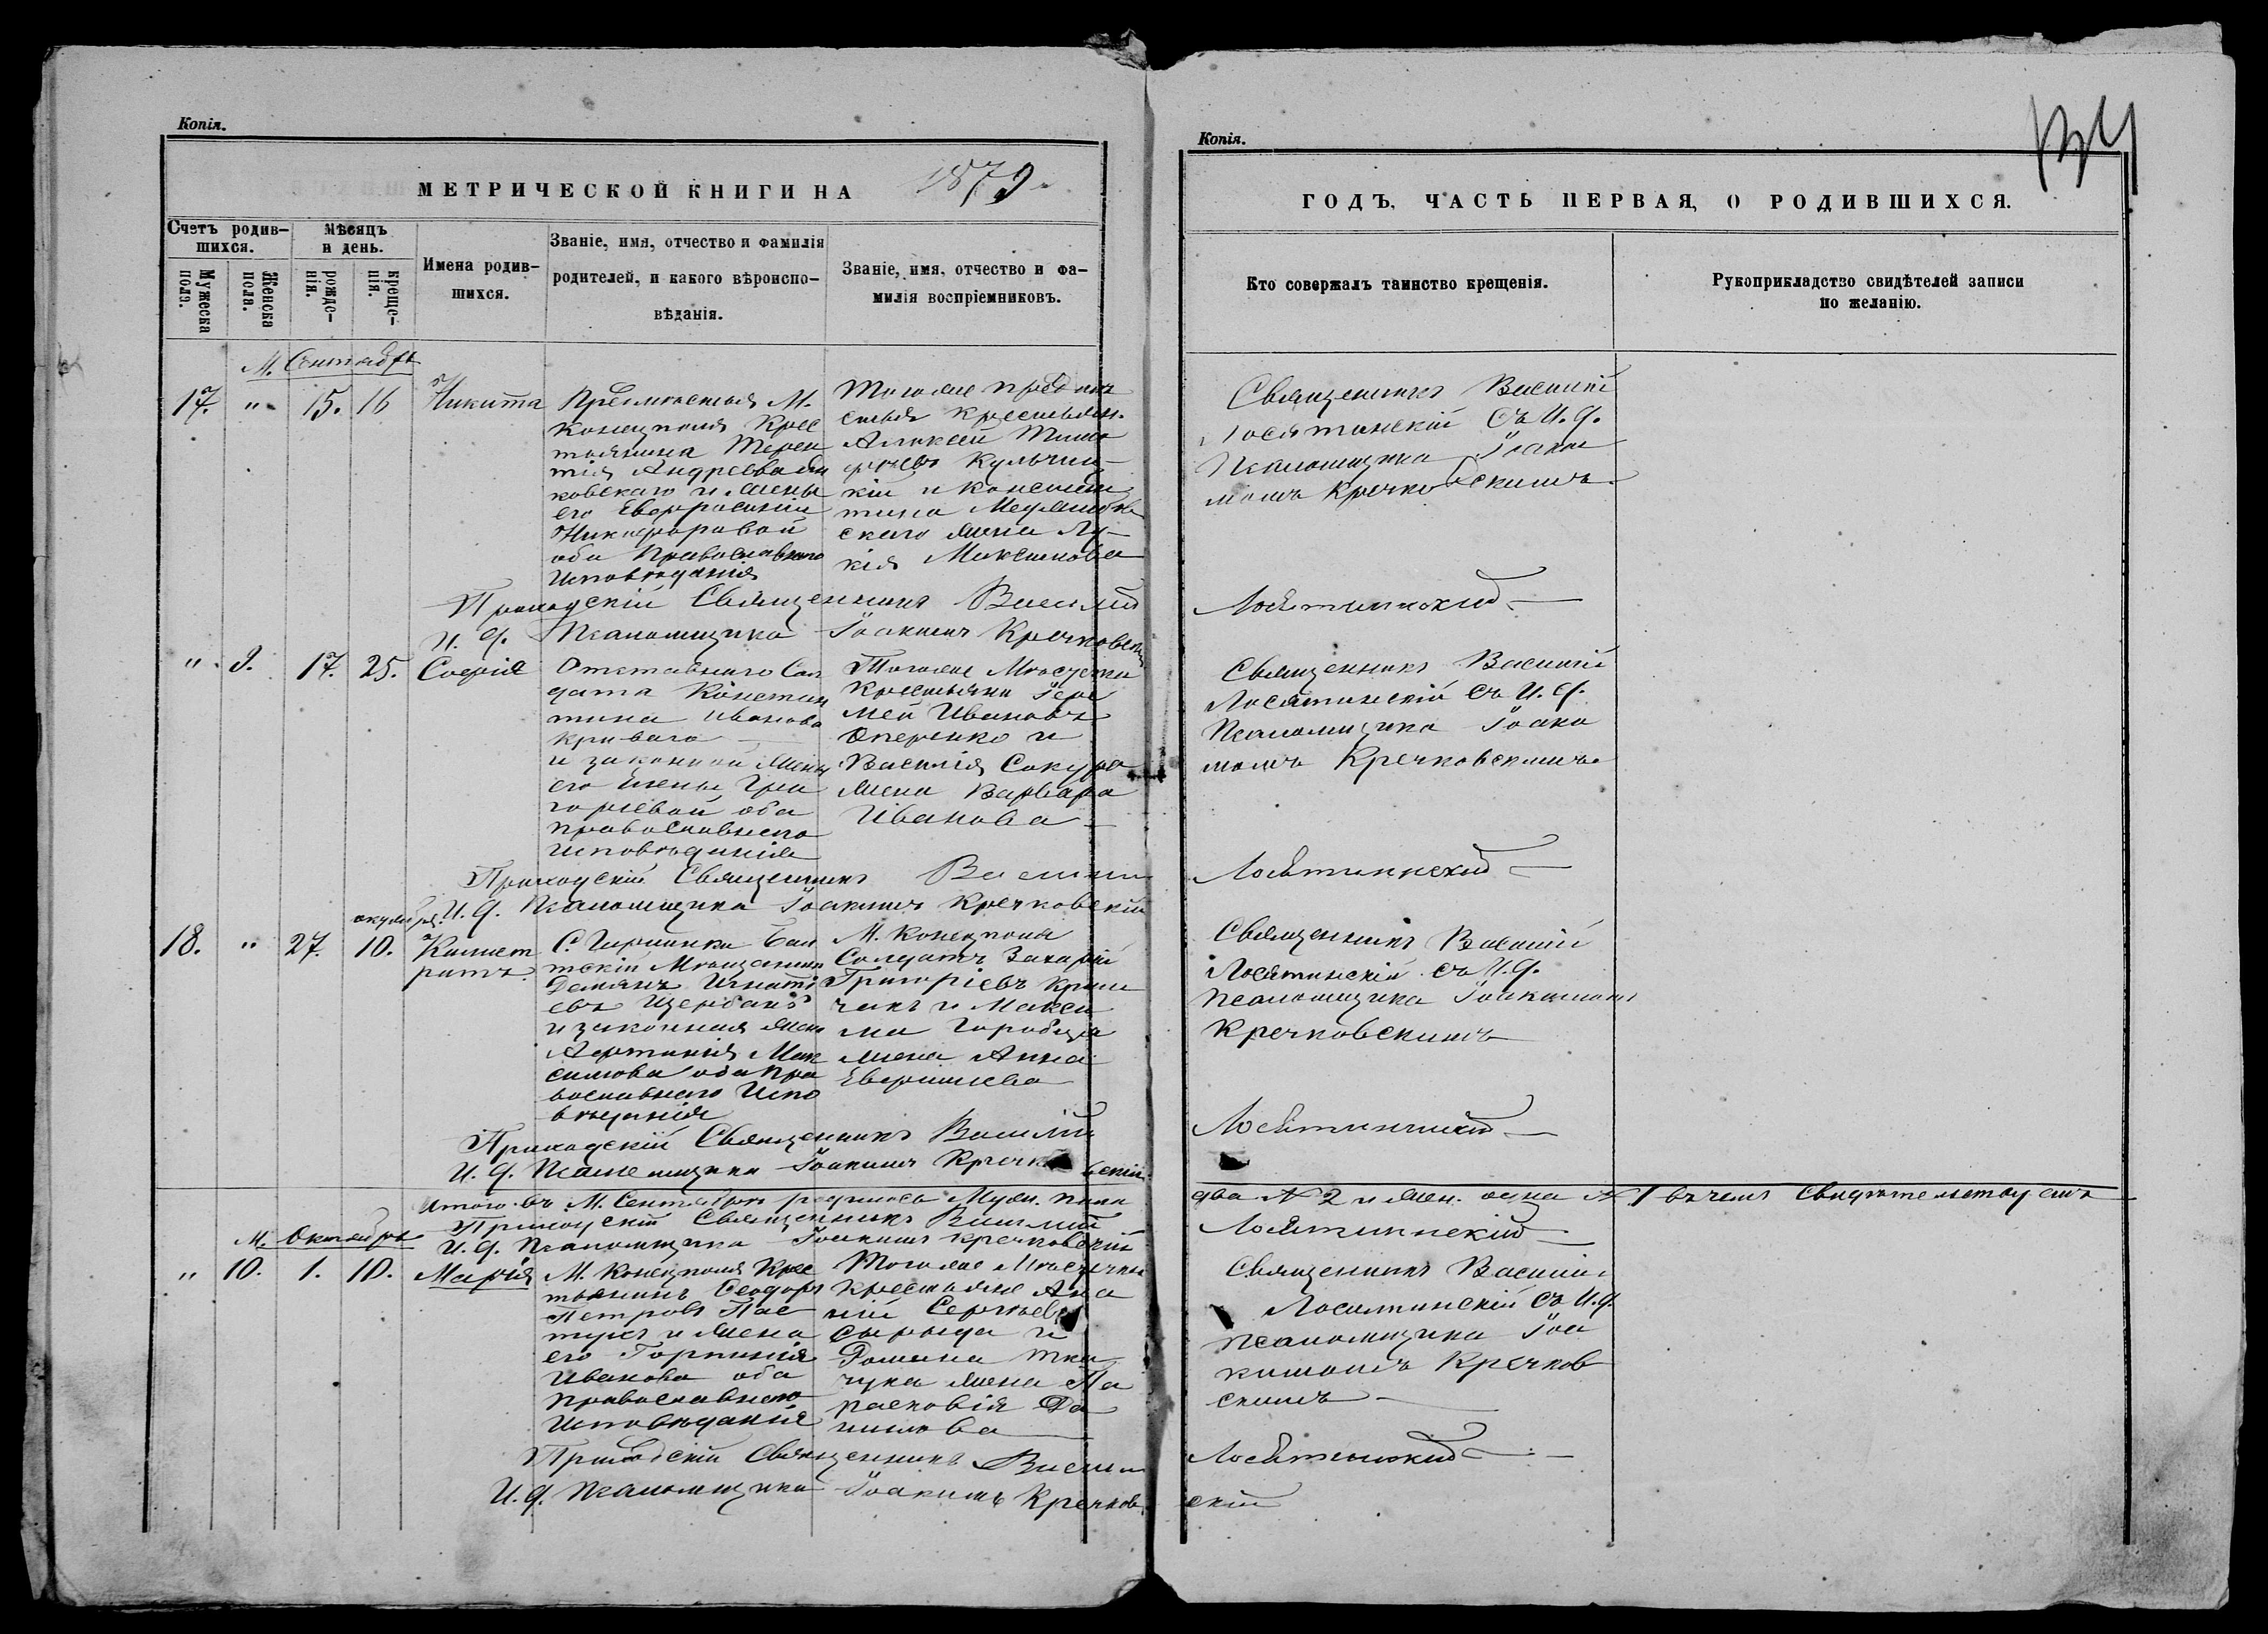 Копія.
МЕТРИЧЕСКОЙ КНИГИ НА 1879
Счетъ родив-
шихся.
Мужеска
пола.
Женска
пола.
Мѣсяцъ
и день.
рожде-
нія.
креще-
нія.
Имена родив-
шихся.
Званіе, имя, отчество и фамилія
родителей, и какого вѣроиспо-
вѣданія.
Званіе, имя, отчество и фа-
милія воспріемниковъ.
М. Сентябрь
17. " 15. 16
Никита
Предмѣстья М.
Конецполя Крес
тьянина Терен
тія Андреева
ковскаго и жены
его Евфросиніи
Никифоровой
оба Православнаго
Исповѣданія
Тогоже предмѣ
стья крестьян.
Алексей Тимо
фѣевъ Кульчиц-
кій и Констан
тина
скаго жена Лу-
кія Максимова
Приходскій Священникъ Василій
И. д. Псаломщика Іоакимъ Кречковскій
" 9. 17. 25.
Софія
Отставнаго Сол
дата Констан
тина Иванова
Криваго
и законной жены
его Елены Гри
горіевой оба
православнаго
исповѣданія
Тогоже Мѣстечка
Крестьяни Іере
мей Ивановъ
Оперенко и
Василія Сокура
жена Варвара
Иванова
Приходскій Священникъ Василій
И. д. Псаломщика Іоакимъ Кречковскій
18. " 27. октября 10.
Калист
ратъ
Мѣщанинъ
Демянъ Игнаті
евъ Щербань
и законная жена
Агафанія Мак
симова оба пра
вославнаго Испо
вѣданія
М. Конецполя
Солдатъ Захарій
Григоріевъ Крив
чакъ и Макси
ма Горобца
жена Анна
Евфиміева
Приходскій Священникъ Василій
И. д. Псаломщика Іоакимъ Кречковскій
Итого въ М. Сентябрѣ родилось Муж. пола
Приходскій Священникъ Василій
И. д. Псаломщика Іоакимъ Кречковскій
М. Октябрь
" 10. 1. 10.
Марія
М. Конецполя Крес
тьянинъ Ѳеодоръ
Петровъ Пас
тухъ и жена
его Горпинія
Иванова оба
православнаго
Исповѣданія
Тогоже Мѣстечка
крестьяне Ана
ній Сергѣевъ
Сырыца и
Фомина Тка
чука жена Па
расковія Да
нилова
Приходскій Священникъ Василій
И. д. Псаломщика Іоакимъ Кречков
Копія.
ГОДЪ, ЧАСТЬ ПЕРВАЯ, О РОДИВШИХСЯ.
Кто совершалъ таинство крещенія.
Рукоприкладство свидѣтелей записи
по желанію.
Священникъ Василій
Лосятинскій съ И. д.
Псаломщика Іоаки
момъ Кречковскимъ
Лосятинский
Священникъ Василій
Лосятинскій съ И. д.
Псаломщика Іоаки
момъ Кречковскимъ
Лосятинский
Священникъ Василій
Лосятинскій съ И. д.
псаломщика Іоакимомъ
Кречковскимъ
Лосятинский
два № 2 и жен. одна № 1 въ чемъ свидѣтельствуемъ
Лосятинскій
Священникъ Василій
Лосятинскій съ И. д.
псаломщика Іоа
кимомъ Кречков
скимъ
Лосятинский
скій